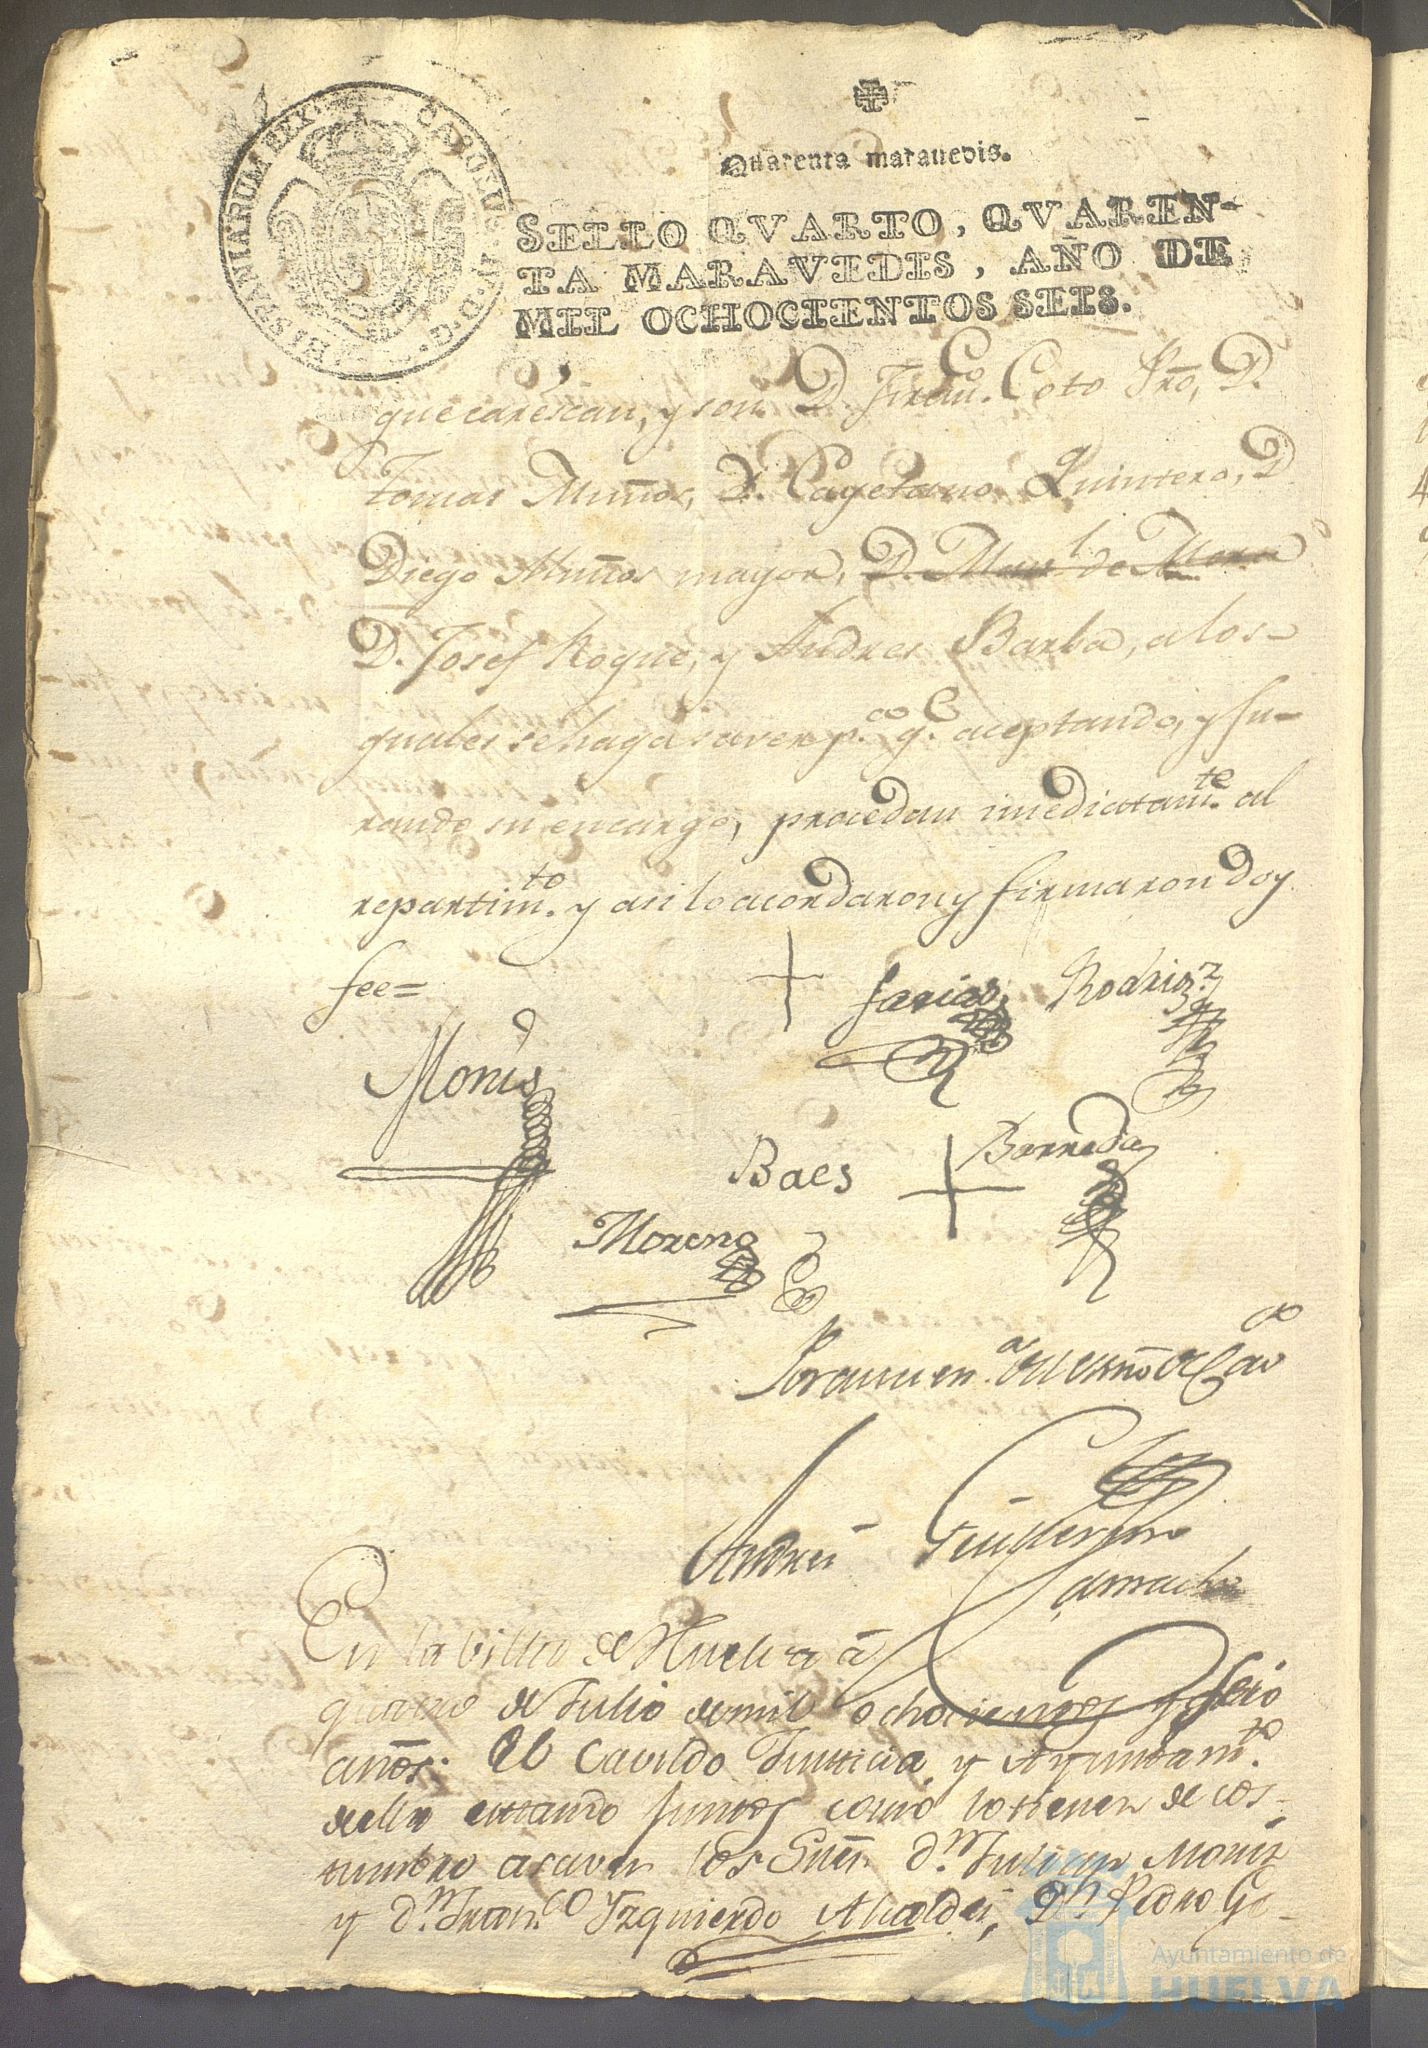 CAROLUS IV D. G. HISPANIARUM REX
Quarenta maravedis.
SELLO QVARTO, QVAREN-
TA MARAVEDIS, AÑO DE
MIL OCHOCIENTOS SEIS.
que caréscan, y son D. Fran.co Coto Pro, D.
Tomas Muños, D. Cayetano Quintero, D
Diego Muños mayor, D. Man.l de Mora
D. Josef Roque, y Andres Barba, a los-
quales se haga saver p.co q.e aceptando, y ju-
rando su encargo, procedan imediatam.te al
repartim.to y asi lo acordaron y firmaron doy
fee=
Farias Rodrig.z
Monis
Baes Barreda
Moreno
Andres
En la Villa de Huelva a
quatro de Julio de mil ochocientos y seis
años: El Cavildo Justicia, y Ayuntam.to
della estando juntos como lo tienen de cos-
tumbre a saver los Sres D.n Julian Monis
y D.n Fran.co Yzquierdo Alcaldes, D.n Pedro Go-
Ayuntamiento de
HUELVA